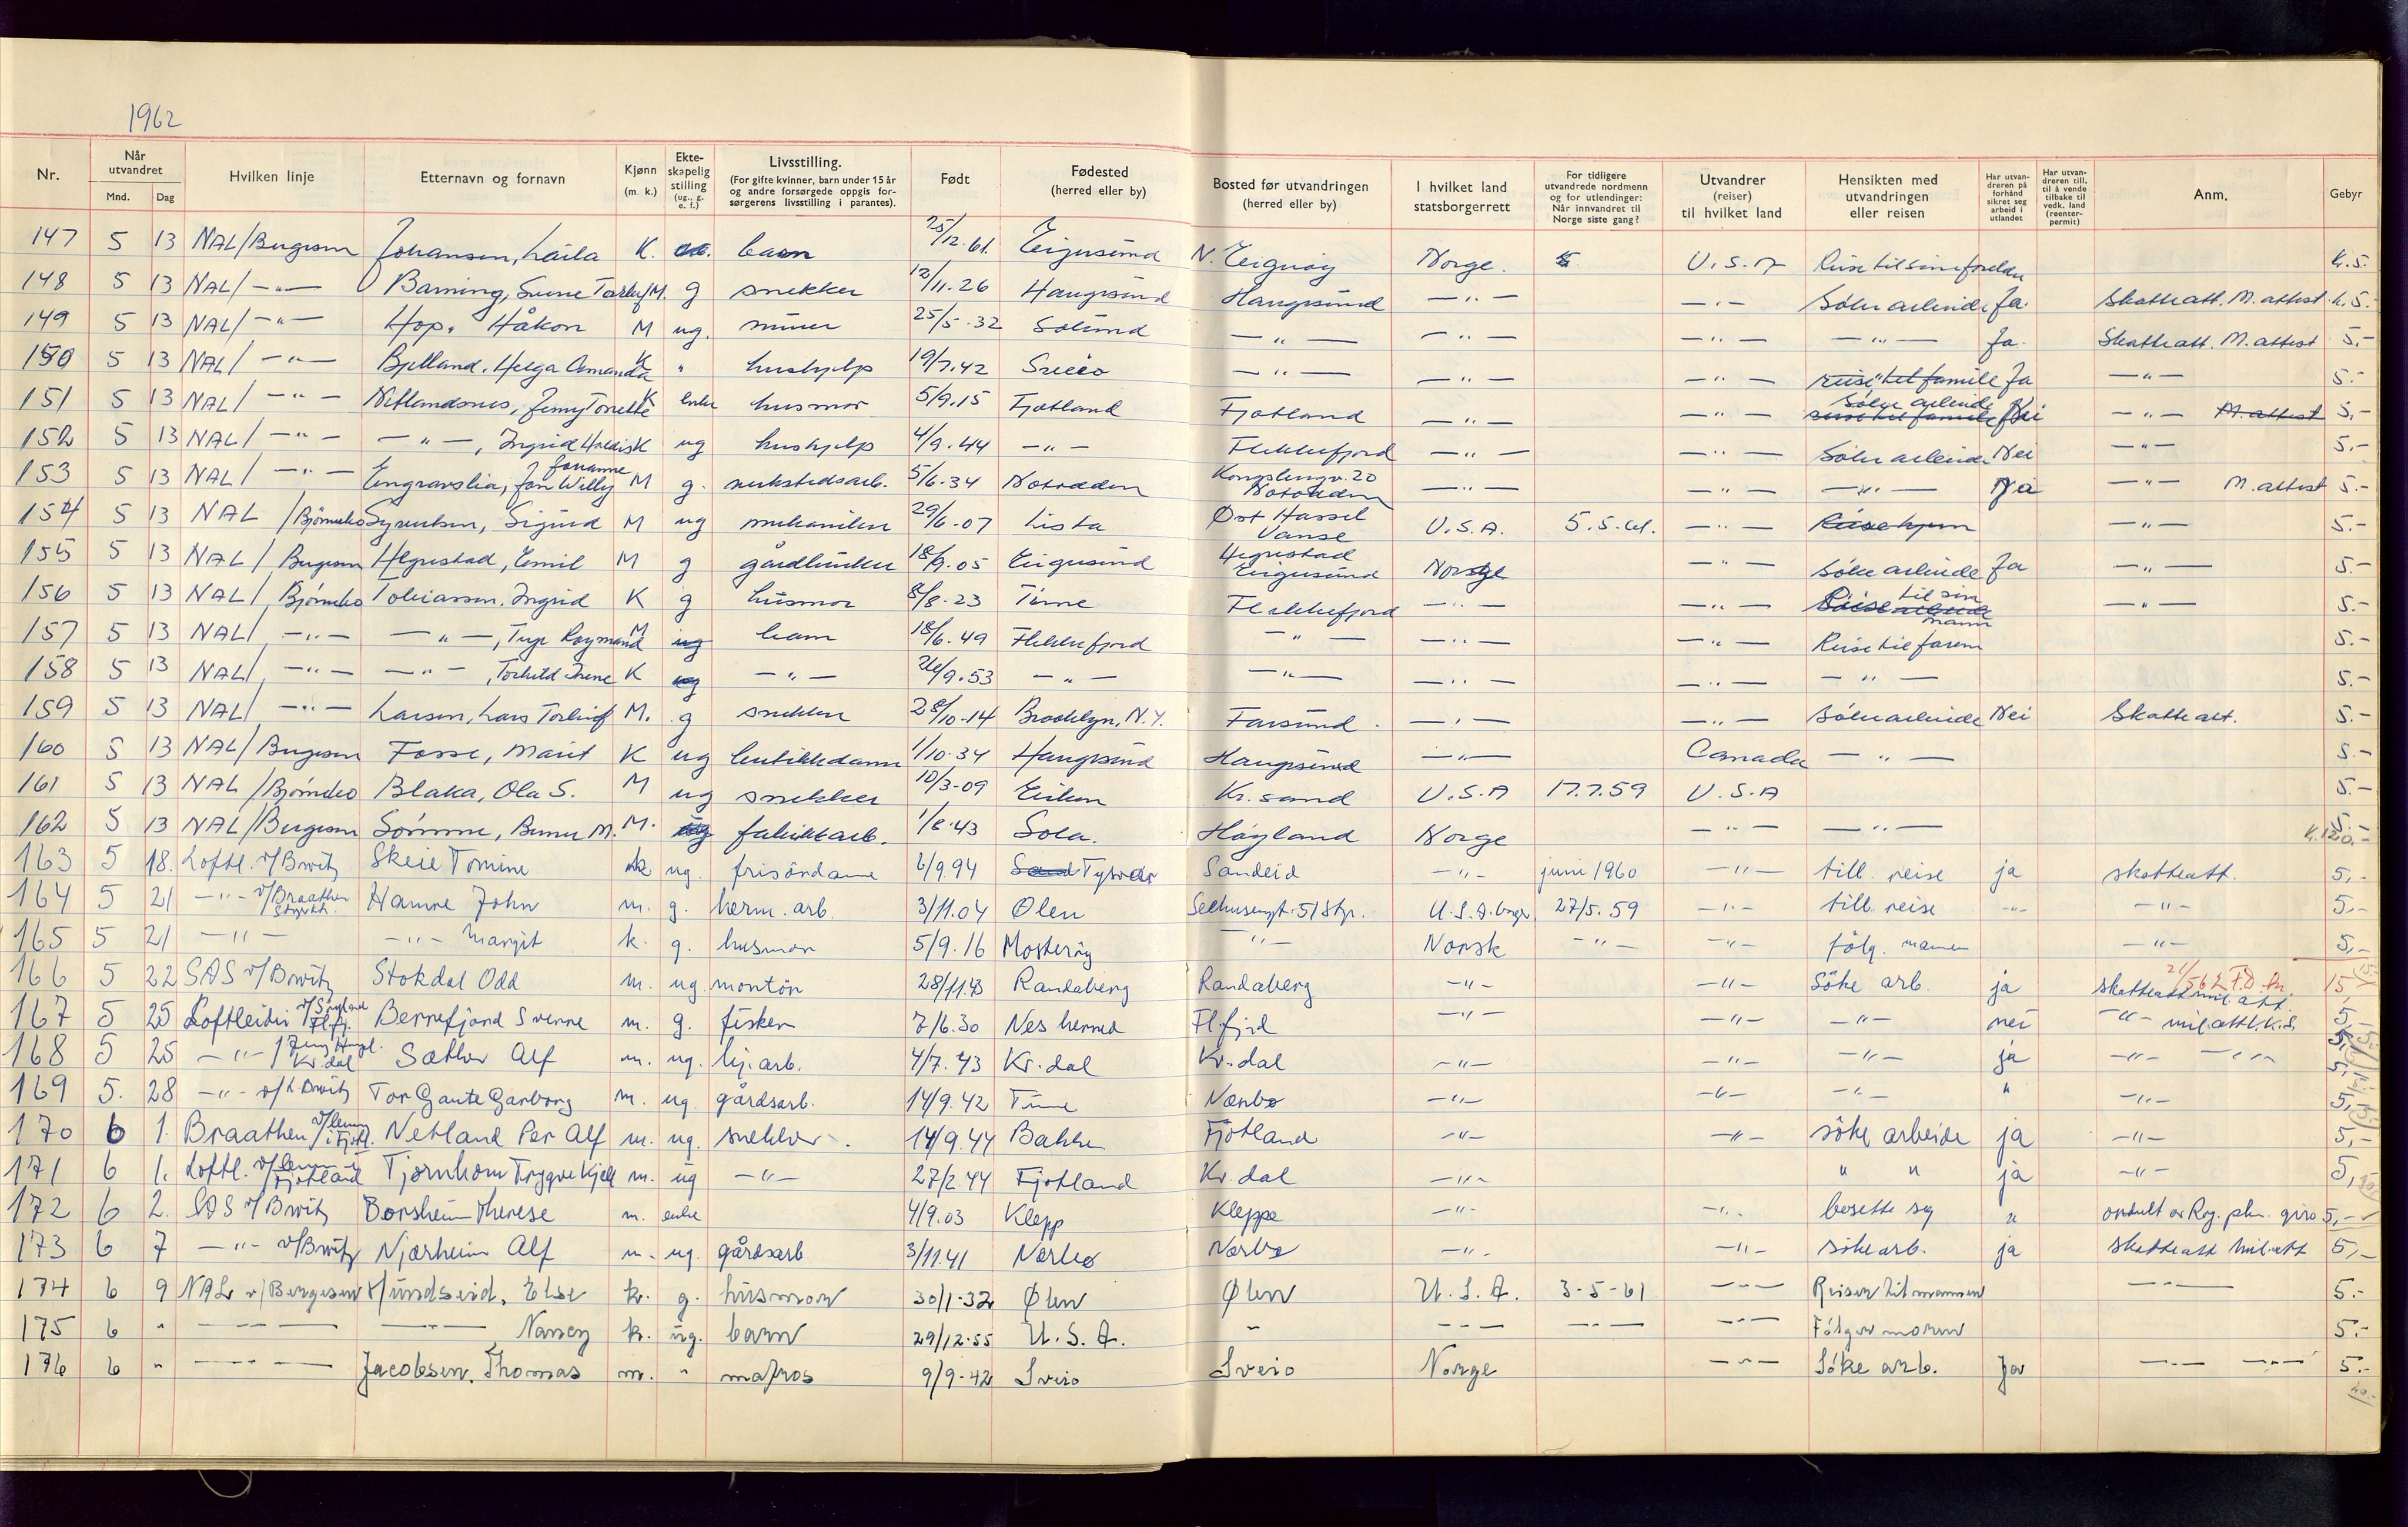 1962
Nr. Når utvandret Mnd. Dag Hvilken linje Etternavn og fornavn Kjønn (m. k.) Ekte-skapelig stilling (ug., g. e. f.) Livsstilling. (For gifte kvinner, barn under 15 år og andre forsørgede oppgis for-sørgerens livsstilling i parantes). Født Fødested (herred eller by) Bosted før utvandringen (herred eller by) I hvilket land statsborgerrett For tidligere utvandrede nordmenn og for utlendinger: Når innvandret til Norge siste gang? Utvandrer (reiser) til hvilket land Hensikten med utvandringen eller reisen Har utvan-dreren på forhånd sikret seg arbeid i utlandet Har utvan-dreren till. til å vende tilbake til vedk. land (reenter-permit) Anm. Gebyr
147 5 13 NAL/Bergesen Johansen, Laila K. barn 25/12.61 Eigersund N. Eigerøy Norge. U.S.A Reise til sine foreldre k. 5.-
148 5 13 NAL/ -"- Barning, Sverre Torleif M. g snekker 12/11.26 Haugesund Haugesund -"- -"- Søke arbeide Ja. Skatteatt. M. attest k. 5.-
149 5 13 NAL/ -"- Hop, Håkon M ug. murer 25/5.32 Solund -"- -"- -"- -"- Ja. Skatteatt. M. attest 5.-
150 5 13 NAL/ -"- Bjelland, Helga Amanda K " hushjelp 19/7.42 Sveio -"- -"- -"- reise til familie Ja -"- 5.-
151 5 13 NAL/ -"- Netlandsnes, Jenny Tonette K enke husmor 5/9.15 Fjotland Fjotland -"- -"- Søke arbeide reise til familie Nei -"- M. attest 5.-
152 5 13 NAL/ -"- -"-, Ingrid Hredis Johanne K ug hushjelp 4/9.44 -"- Flekkefjord -"- -"- Søke arbeide Nei -"- 5.-
153 5 13 NAL/ -"- Engravslia, Jan Willy M g. verkstedsarb. 5/6.34 Notodden Kongsbergv. 20 Notodden -"- -"- -"- Ja -"- M. attest 5.-
154 5 13 NAL /Bjørnebo Syvertsen, Sigurd M ug mekaniker 29/6.07 Lista Øst Hassel Vanse U.S.A. 5.5.61. -"- Reise hjem -"- 5.-
155 5 13 NAL / Bergesen Hegrestad, Emil M g gårdbruker 18/9.05 Eigersund Hegrestad Eigersund Norge -"- Søke arbeide Ja -"- 5.-
156 5 13 NAL/ Bjørnebo Tobiassen, Ingrid K g husmor 8/8.23 Time Flekkefjord -"- -"- Reise til sin mann -"- 5.-
157 5 13 NAL/ -"- -"-, Terje Roymand M ug barn 18/6.49 Flekkefjord -"- -"- -"- Reise til faren 5.-
158 5 13 NAL/ -"- -"-, Torhild Irene K ug -"- 26/9.53 -"- -"- -"- -"- -"- 5.-
159 5 13 NAL/ -"- Larsen, Lars Torleif M. g snekker 28/10.14 Brooklyn, N.Y. Farsund -"- -"- Søke arbeide Nei Skatteatt. 5.-
160 5 13 NAL/ Bergesen Fosse, Marit K ug butikkdame 1/10.34 Haugesund Haugesund -"- Canada -"- 5.-
161 5 13 NAL /Bjørnebo Blaka, Ola S. M ug snekker 10/3-09 Eiken Kr. sand U.S.A 17.7.59 U.S.A 5.-
162 5 13 NAL/Bergesen Sømme, Berner M. M. ug fabrikkarb. 1/6.43 Sola. Høyland Norge -"- -"- 5.-
163 5 18. Loftl. v/Brwitz Skeie Tomine k ug. frisördame 6/9.94 Tysvær Sandeid -"- juni 1960 -"- till. reise ja skatteatt. 5,-
164 5 21 -"- v/Braathen Styrkh. Hamre John m. g. herm. arb. 3/11.04 Ölen Seehusengt. 51 Stgr. U.S.A. borger 27/5.59 -"- till. reise -"- -"- 5,-
165 5 21 -"- -"- Margit k. g. husmor 5/9.16 Mosteröy -"- Norsk -"- -"- fölg. mannen -"- 5,-
166 5 22 SAS v/Brwitz Stokdal Odd m. ug. montör 28/11.43 Randaberg Randaberg -"- -"- Söke arb. ja skatteatt mil. att. 5,-
167 5 25 Loftleidir Fl.fj. Berrefjord Sverre m. g. fisker 7/6.30 Nes herred Fl.fjrd -"- -"- -"- nei -"- mil. att. 5,-
168 5 25 -"- / Kr.dal Sæther Alf m. ug. hj. arb. 4/7.43 Kr. dal Kr. dal -"- -"- -"- ja -"- -"- 5,-
169 5. 28 -"- v/Brwitz Tor Gaute Garborg m. ug. gårdsarb. 14/9.42 Time Nærbø -"- -"- -"- " -"- 5,-
170 6 1. Braathen v/lensm i Fjotl. Netland Per Alf m. ug. snekker 14/9.44 Bakke Fjotland -"- -"- söke arbeide ja -"- 5,-
171 6 1. Loftl. v/lensm i Fjotland Tjørnhom Trygve Kjell m. ug -"- 27/2.44 Fjotland Kr. dal -"- " " ja -"- 5,-
172 6 2. SAS v/Brwitz Borsheim Therese m. enke 4/9.03 Klepp Kleppe -"- -"- bosette seg " 5,-
173 6 7 -"- v/Brwitz Njærheim Alf m. ug. gårdsarb 3/11.41 Nærbø Nærbø -"- -"- söke arb. ja skatteatt mil. att 5,-
174 6 9 NAL v/Bergesen Hundseid, Else k. g. husmor 30/1-32 Ølen Ølen U.S.A. 3-5-61 -"- Reiser til mannen -"- 5.-
175 6 " -"- -"- Nancy k. ug. barn 29/12.55 U.S.A. " -"- -"- -"- Følger moren 5.-
176 6 " -"- Jacobsen, Thomas m. " matros 9/9-42 Sveio Sveio Norge -"- Søke arb. Ja -"- -"- 5.-